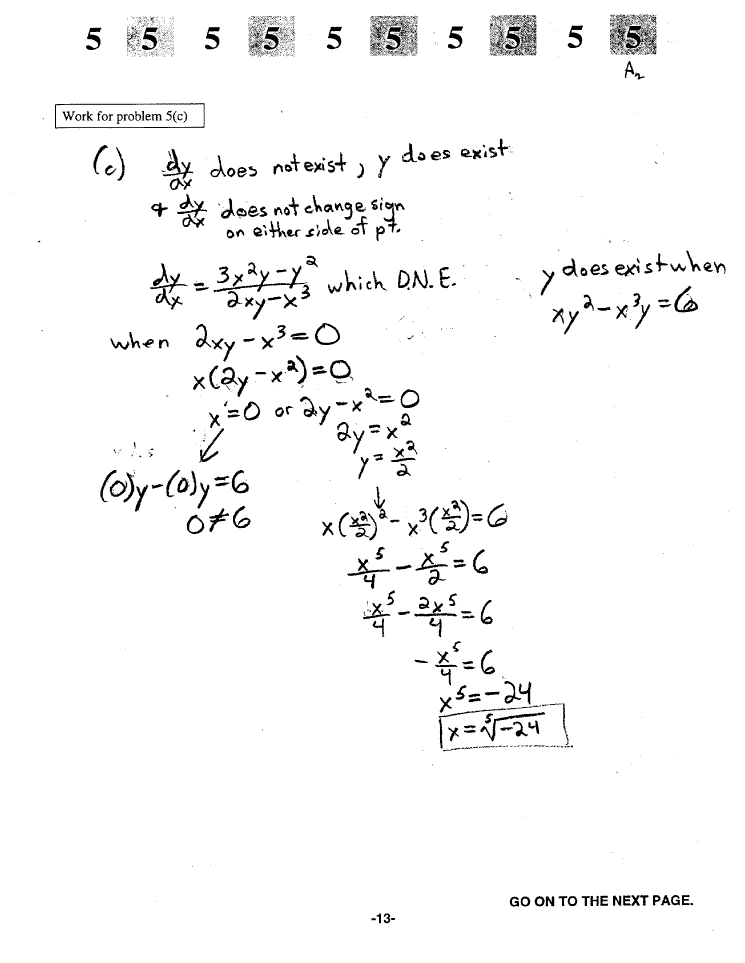 5 5 5 5 5 5 5 5 5 5
A₂
Work for problem 5(c)
(c) dy/dx does not exist, y does exist
& dy/dx does not change sign
on either side of pt.
dy/dx = (3x²y-y²)/(2xy-x³) which D.N.E.
y does exist when
xy²-x³y=6
when 2xy-x³=0
x(2y-x²)=0
x=0 or 2y-x²=0
2y=x²
y=x²/2
(0)y-(0)y=6
0≠6
x(x²/2)²-x³(x²/2)=6
x⁵/4 - x⁵/2 = 6
x⁵/4 - 2x⁵/4 = 6
-x⁵/4 = 6
x⁵=-24
x=⁵√-24
GO ON TO THE NEXT PAGE.
-13-